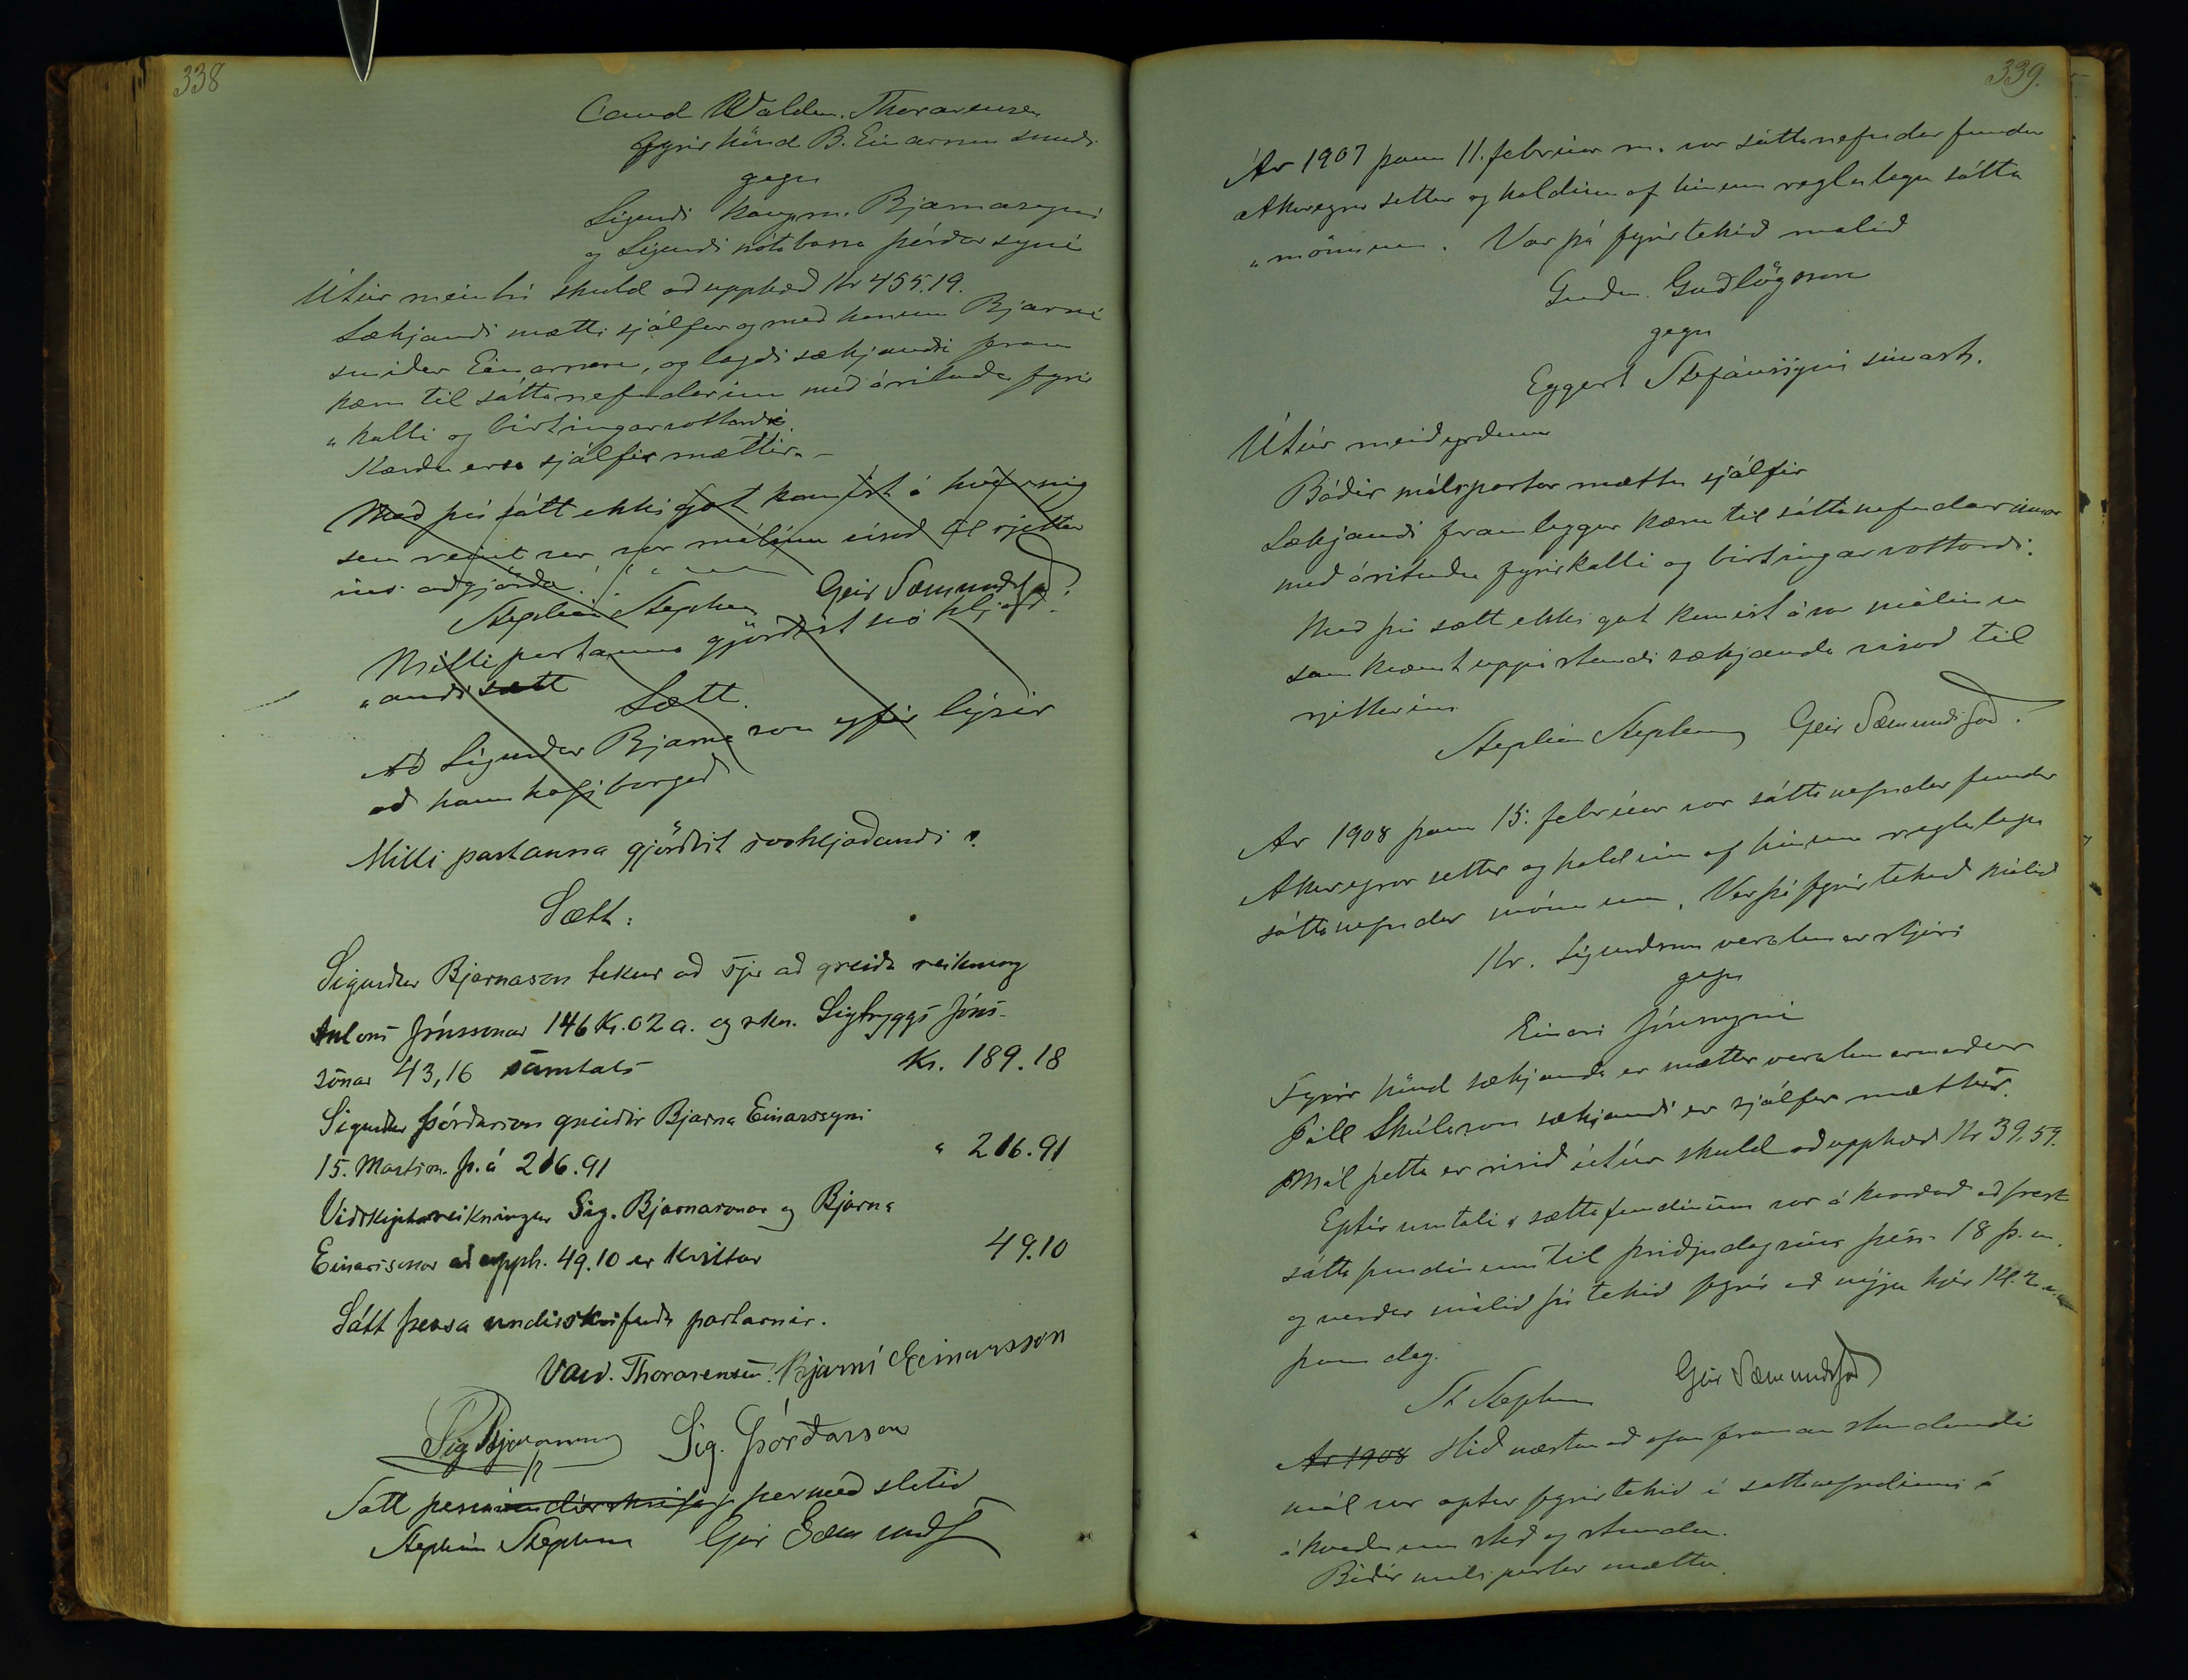 338
Cand Valdm. Thorarensen
fyrir hönd B. Einarssonar smiðs
gegn
Sigurði kaupm. Bjarnasyni
og Sigurði nótabassa Þórðarsyni
Útúr meintri skuld að upphæð Kr 455.19.
Sækjandi mætti sjálfur og með honum Bjarni
smiður Einarsson, og lagði sækjandi fram
kæru til sáttanefndarinnar með árituðu fyrir
„kalli og birtingarvottorði.
Kærðu eru sjálfir mættir. –
Með því sátt ekki gat komist á hvernig
sem reynt var var málinu vísað til rjettar
ins aðgjörða.
Stephán Stephensen Geir Sæmundsson
Milli partanna gjörðist svo hljóð-
„andi sætt
Sætt.
Að Sigurður Bjarnason yfir lýsir
að hann hafi borgað
Milli partanna gjörðist svohljóðandi
Sætt:
Sigurður Bjarnason tekur að sjer að greiða reikning
Antons Jónssonar 146 Kr. 02 a. og rkn. Sigtryggs Jóns-
sonar 43,16 samtals Kr. 189.18
Sigurður Þórðarson greiðir Bjarna Einarssyni
15. Marsm. þ. á 216.91 " 216.91
Viðskiptareikningur Sig. Bjarnasonar og Bjarna
Einarssonar að upph. 49.10 er kvittar 49.10
Sátt þessa undirskrifuðu partarnir.
Vald. Thorarensen. Bjarni Einarsson
Sig Bjarnason Sig. Þórðarson
Sátt þessi undirskrifast þermeð slitið
Stephán Stephensen Geir Sæmundss
339.
Ár 1907 þann 11. febrúar m. var sáttanefndar fundur
Akureyrar settur og haldinn af hinum reglulegu sátta
„mönnum. Var þá fyrirtekið málið
Guðm. Guðlögsson
gegn
Eggert Stefánssyni símast.
Útúr meiðyrðum
Báðir málspartar mættu sjálfir
Sækjandi framleggur kæru til sáttanefndarinnar
með árituðu fyrirkalli og birtingarvottorði.
Með því sætt ekki gat komist á var málinu
samkvæmt uppástandi sækjanda vísað til
rjettarins
Stephán Stephensen Geir Sæmundsson.
Ár 1908 þann 15. febrúar var sáttanefndar fundur
Akureyrar settur og haldinn af hinum reglulegu
sáttanefndar mönnum. Var þá fyrirtekið málið
Kr. Sigurðsson verslunarstjóri
gegn
Einari Jónssyni
Fyrir hönd sækjanda er mættur verslunarmaður
Páll Skúlason sækjandi er sjálfur mættur.
Mál þetta er risið útúr skuld að upphæð Kr 39.59.
Eptir umtali á sættafundinum var ákvarðað að fresta
sátta fundinum til þriðjudagsins þess 18 þ. m.
og verður málið þá tekið fyrir að nýju hjer Kl. 2 e. m.
þann dag.
St Stephensen Geir Sæmundsson
Ár 1908 Hið næsta að ofan framan standandi
mál var aptur fyrirtekið í sáttanefndinni á
ákveðnum stað og stundu.
Báðir málspartar mættu.